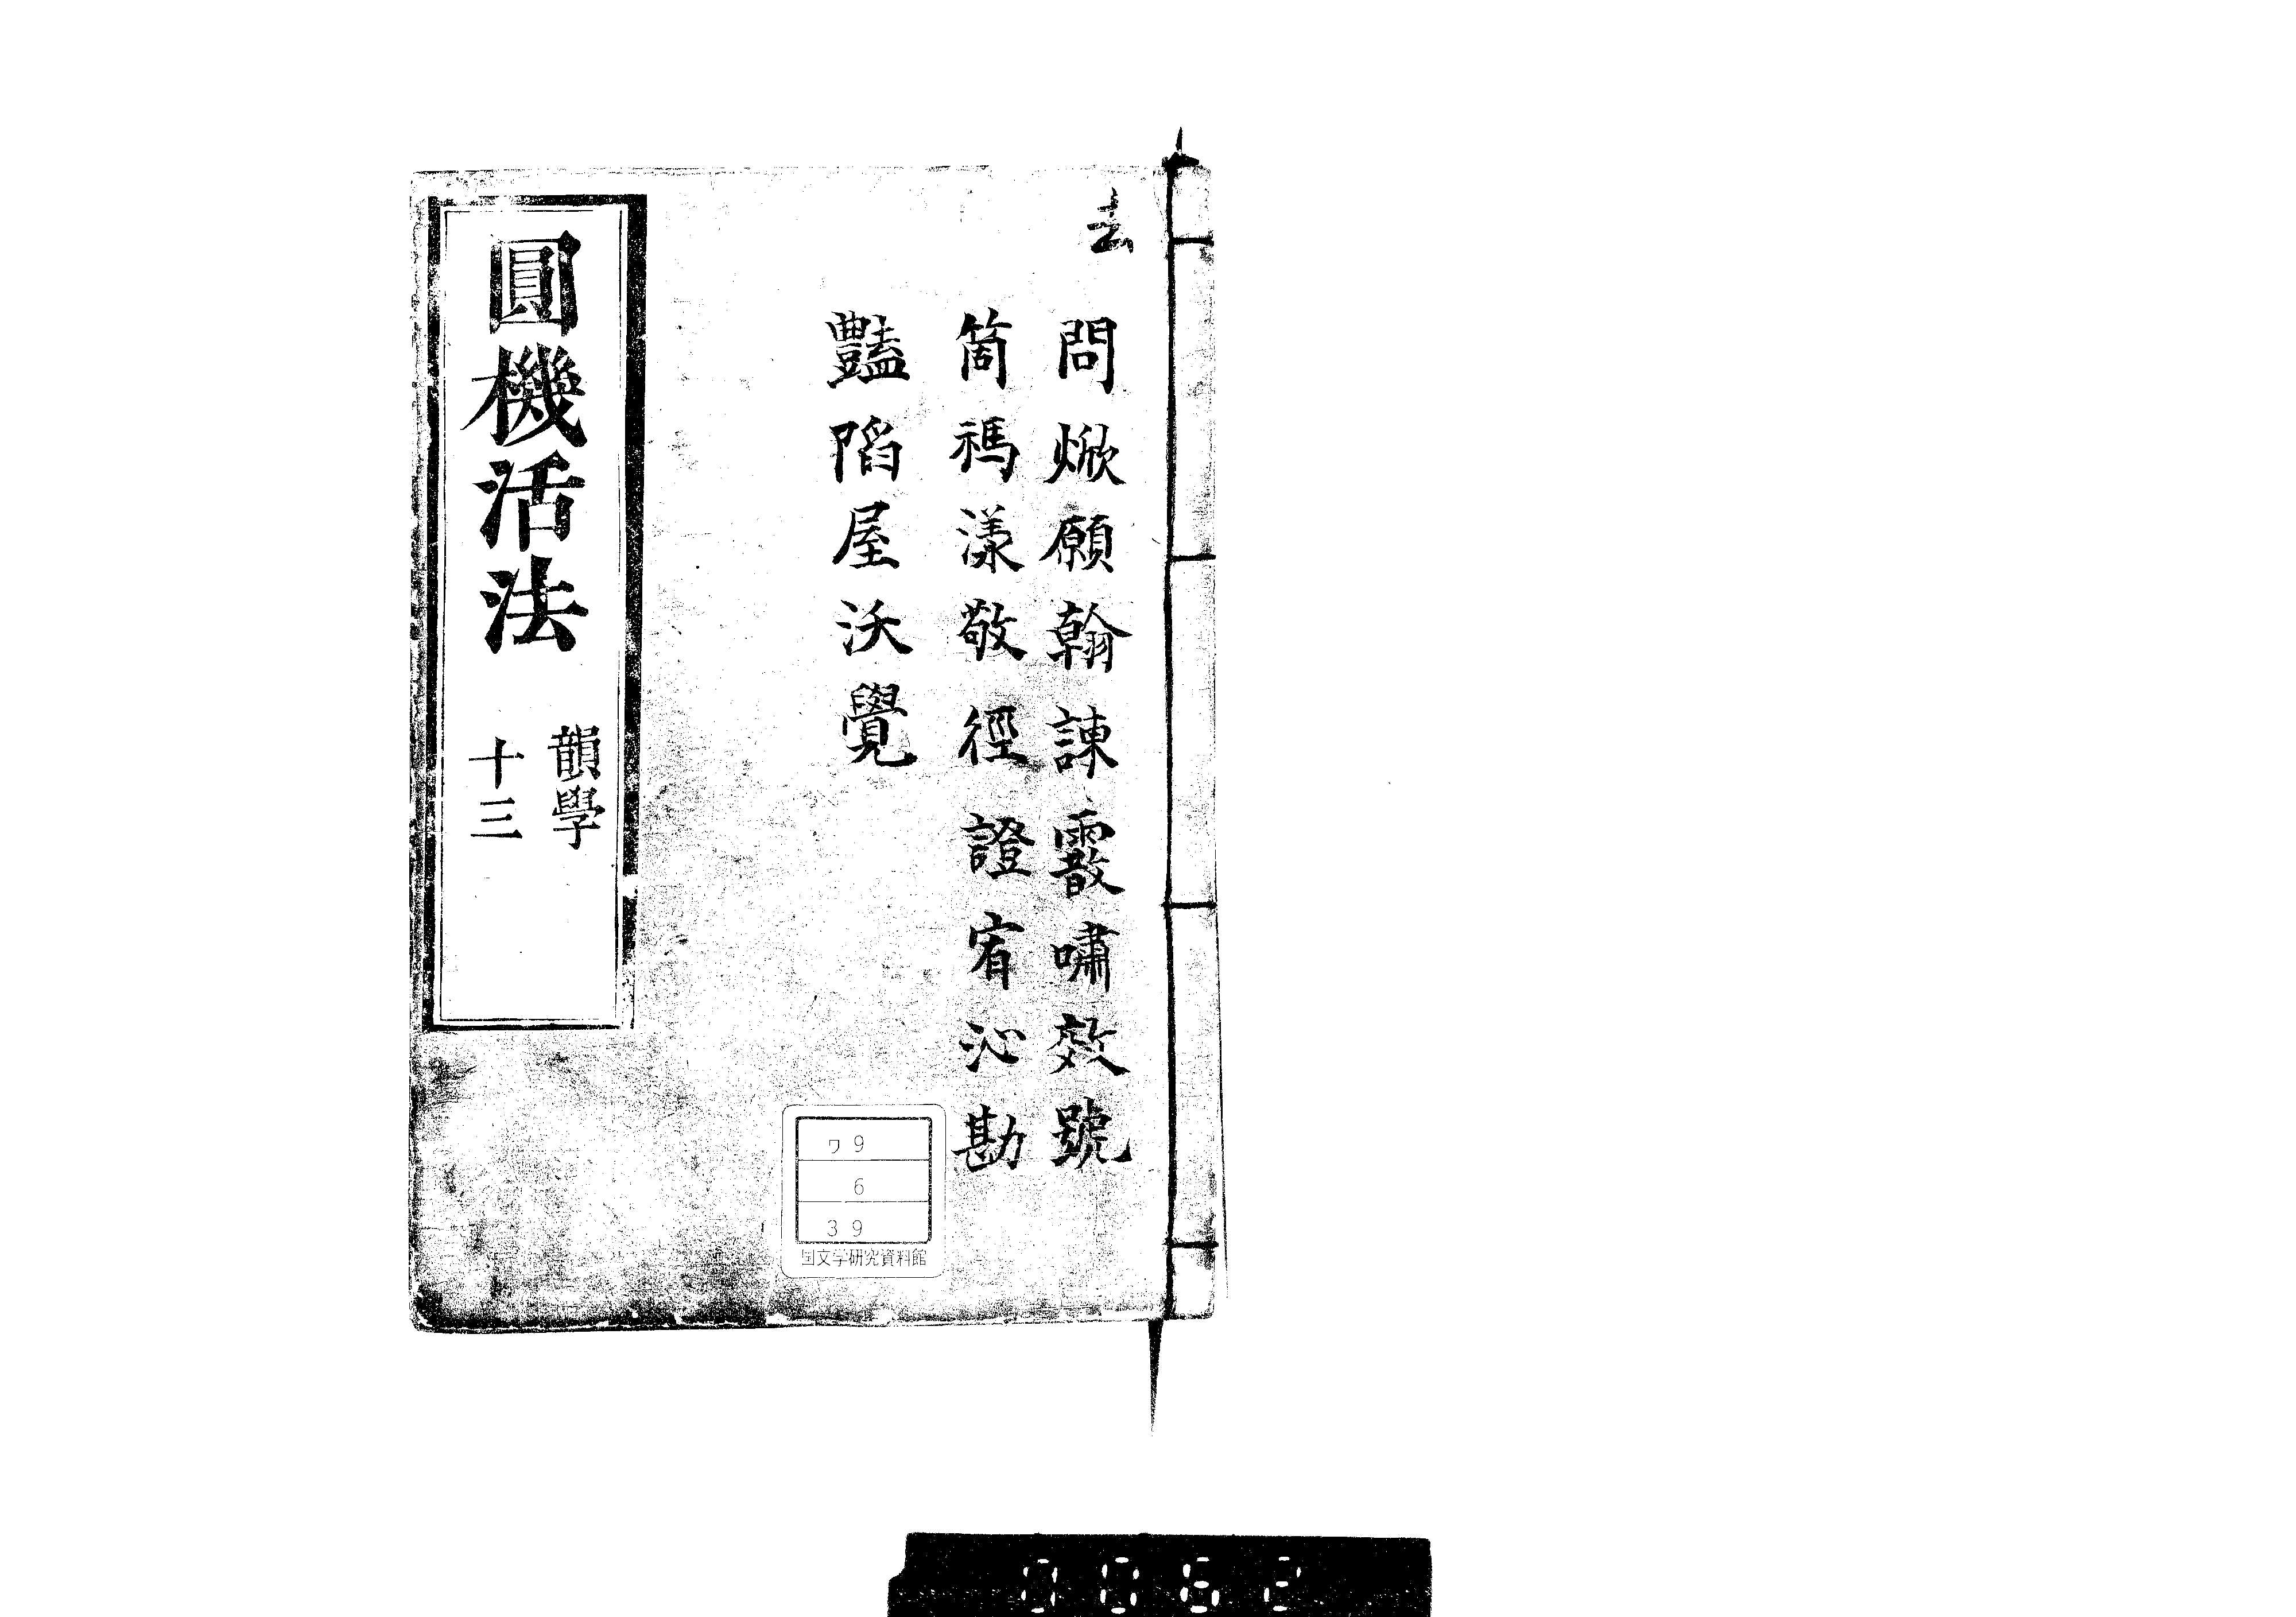 去
問焮願翰諫霰嘯效號
箇禡漾敬徑證宥沁勘
豔陷屋沃覺
圓機活法
韻學
十三
ワ9
6
39
国文学研究資料館